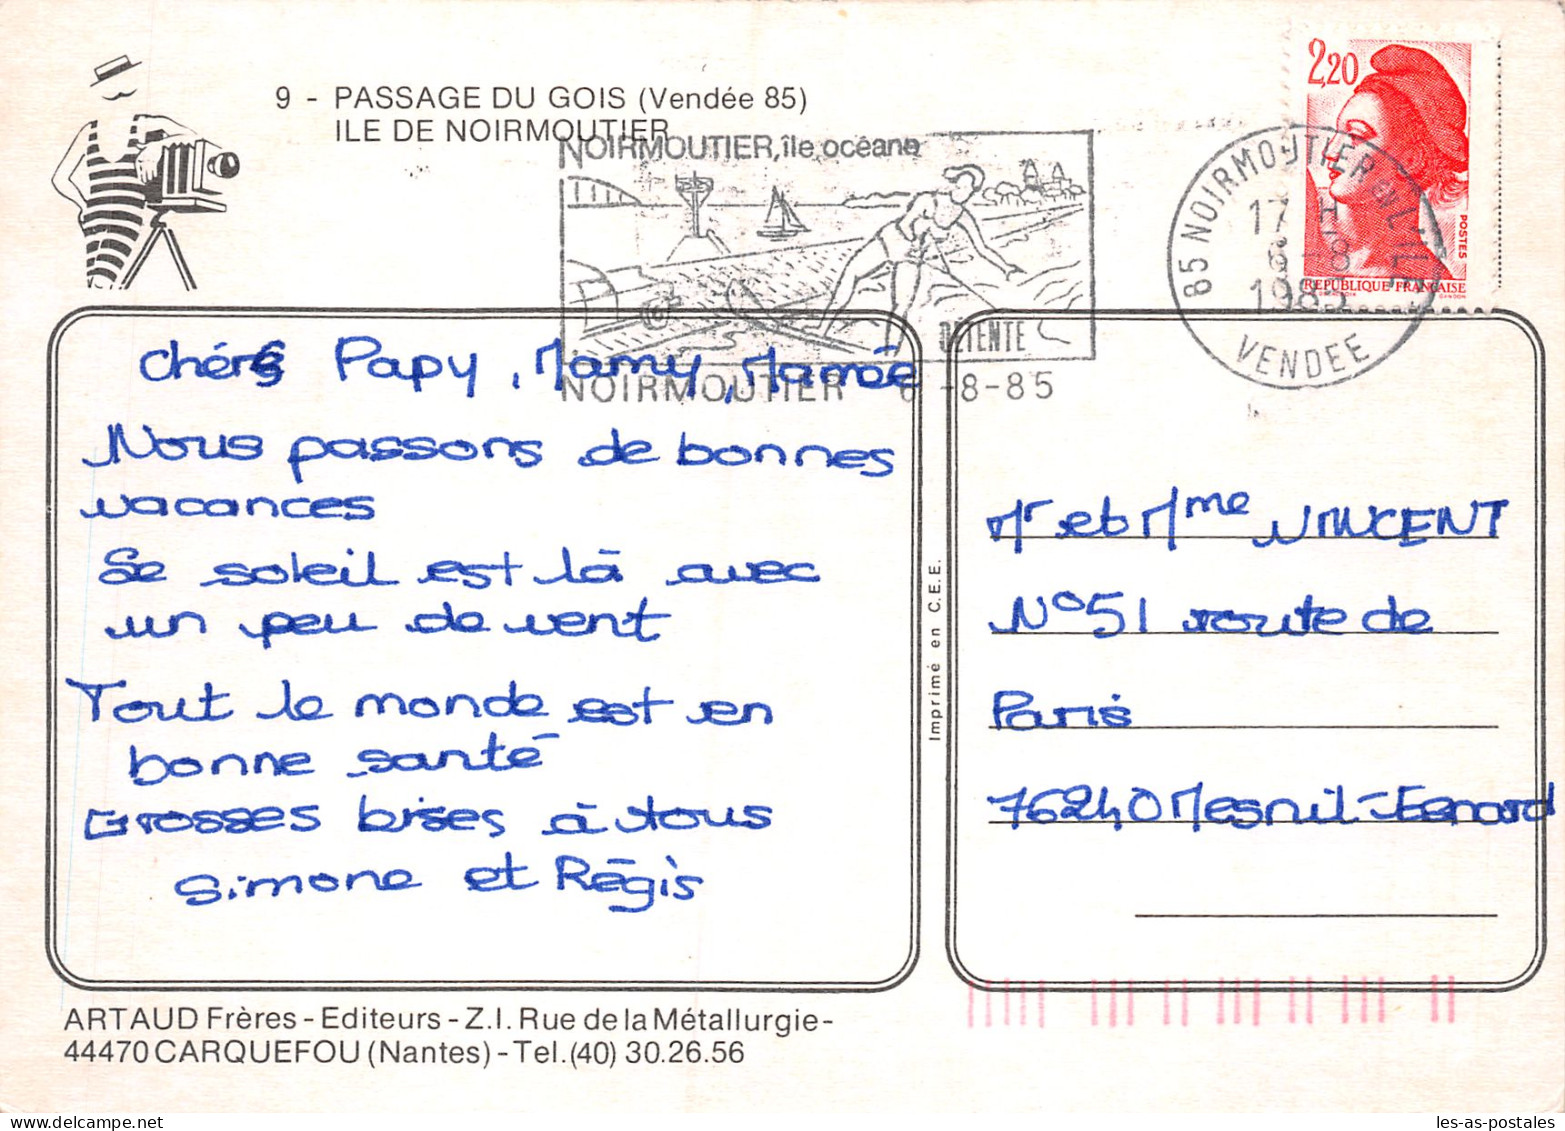 9 - PASSAGE DU GOIS (Vendée 85)
ILE DE NOIRMOUTIER
NOIRMOUTIER, île océane
DETENTE
NOIRMOUTIER 6-8-85
2,20
POSTES
REPUBLIQUE FRANÇAISE
GANDON
85 NOIRMOUTIER EN L'ILE
17 H
6-8
1985
VENDEE
chers Papy, Mamy, Mamée
Nous passons de bonnes
vacances
Le soleil est là avec
un peu de vent
Tout le monde est en
bonne santé
Grosses bises à tous
Simone et Régis
Imprimé en C.E.E.
Mr et Mme VINCENT
N°51 route de
Paris
76240 Mesnil-Esnard
ARTAUD Frères - Editeurs - Z.I. Rue de la Métallurgie -
44470 CARQUEFOU (Nantes) - Tel.(40) 30.26.56
les-as-postales